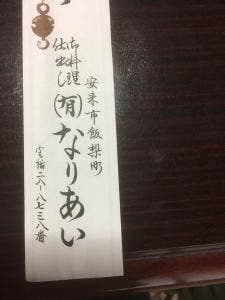 安来市飯梨町
御料理
仕出し
(有)なりあい
電話二八-八七三八番